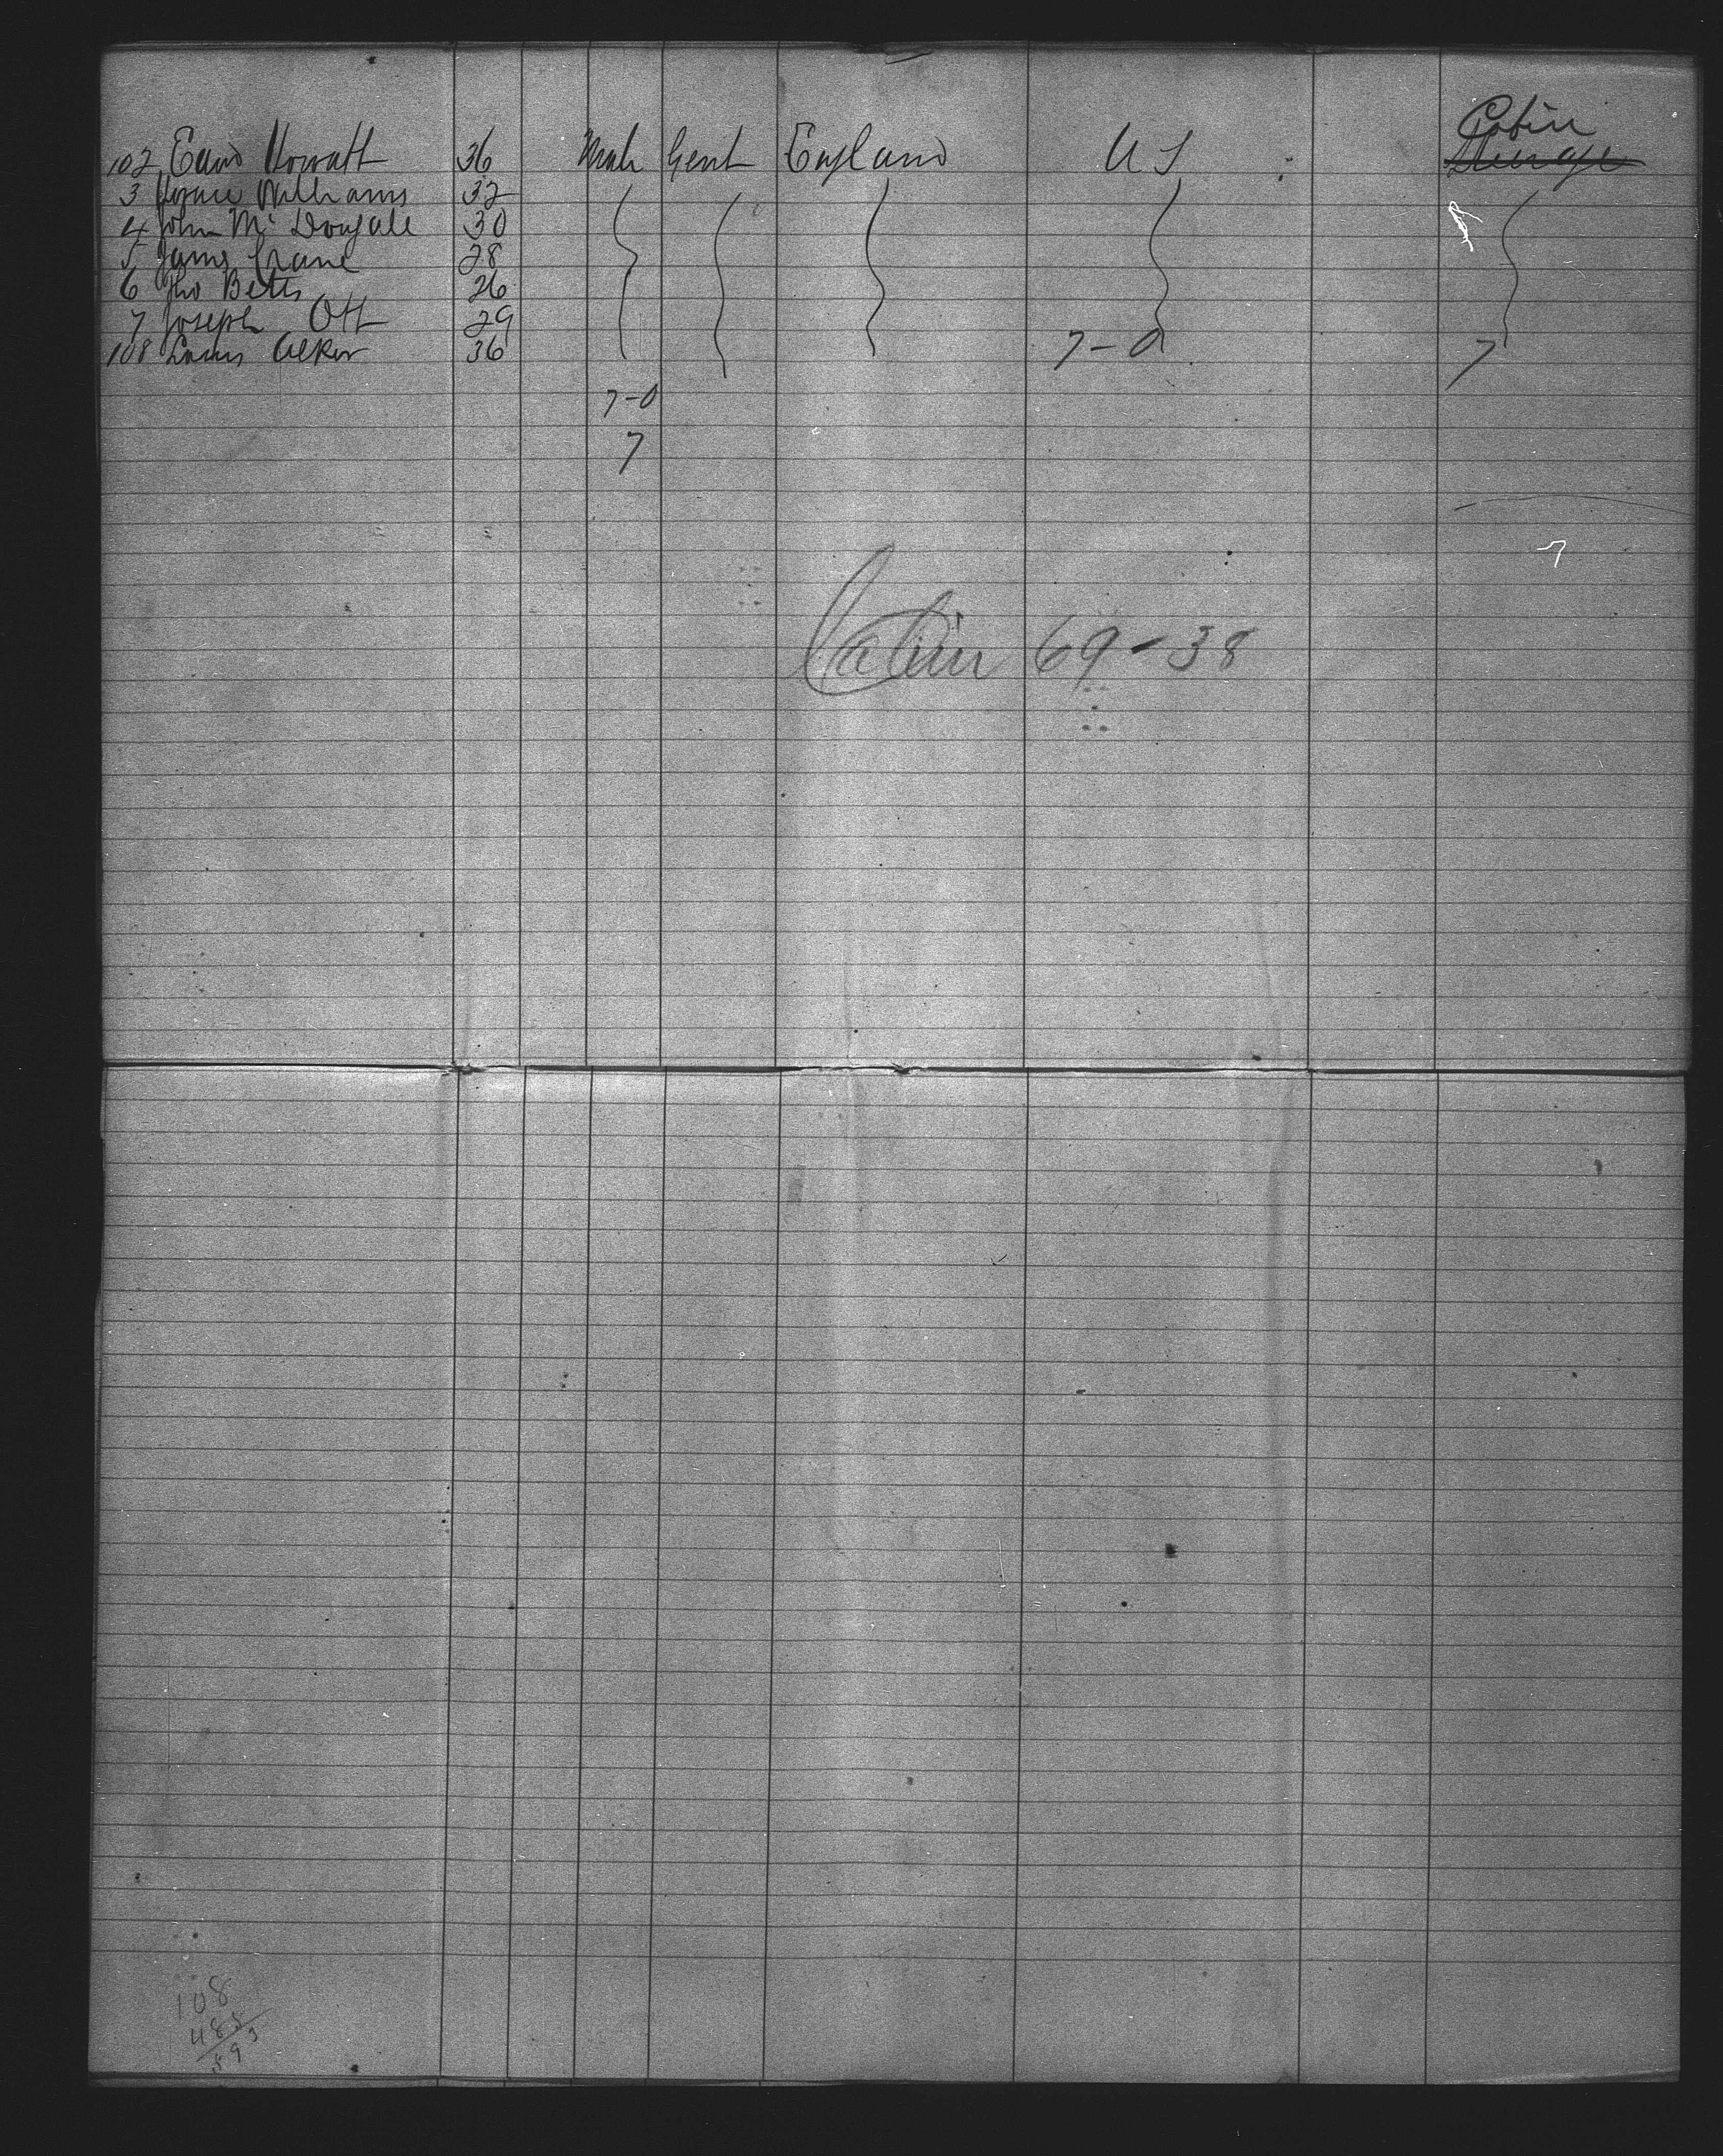 102 Edwd Howatt 36 Male Gent England U S Cabin
3 Williams 32
4 John McDougall 30
5 James Crane 28
6 Jno Betts 26
7 Joseph Ott 29
108 Louis 36 7-0 7
7-0
7
Cabin 69-38
108
485
593